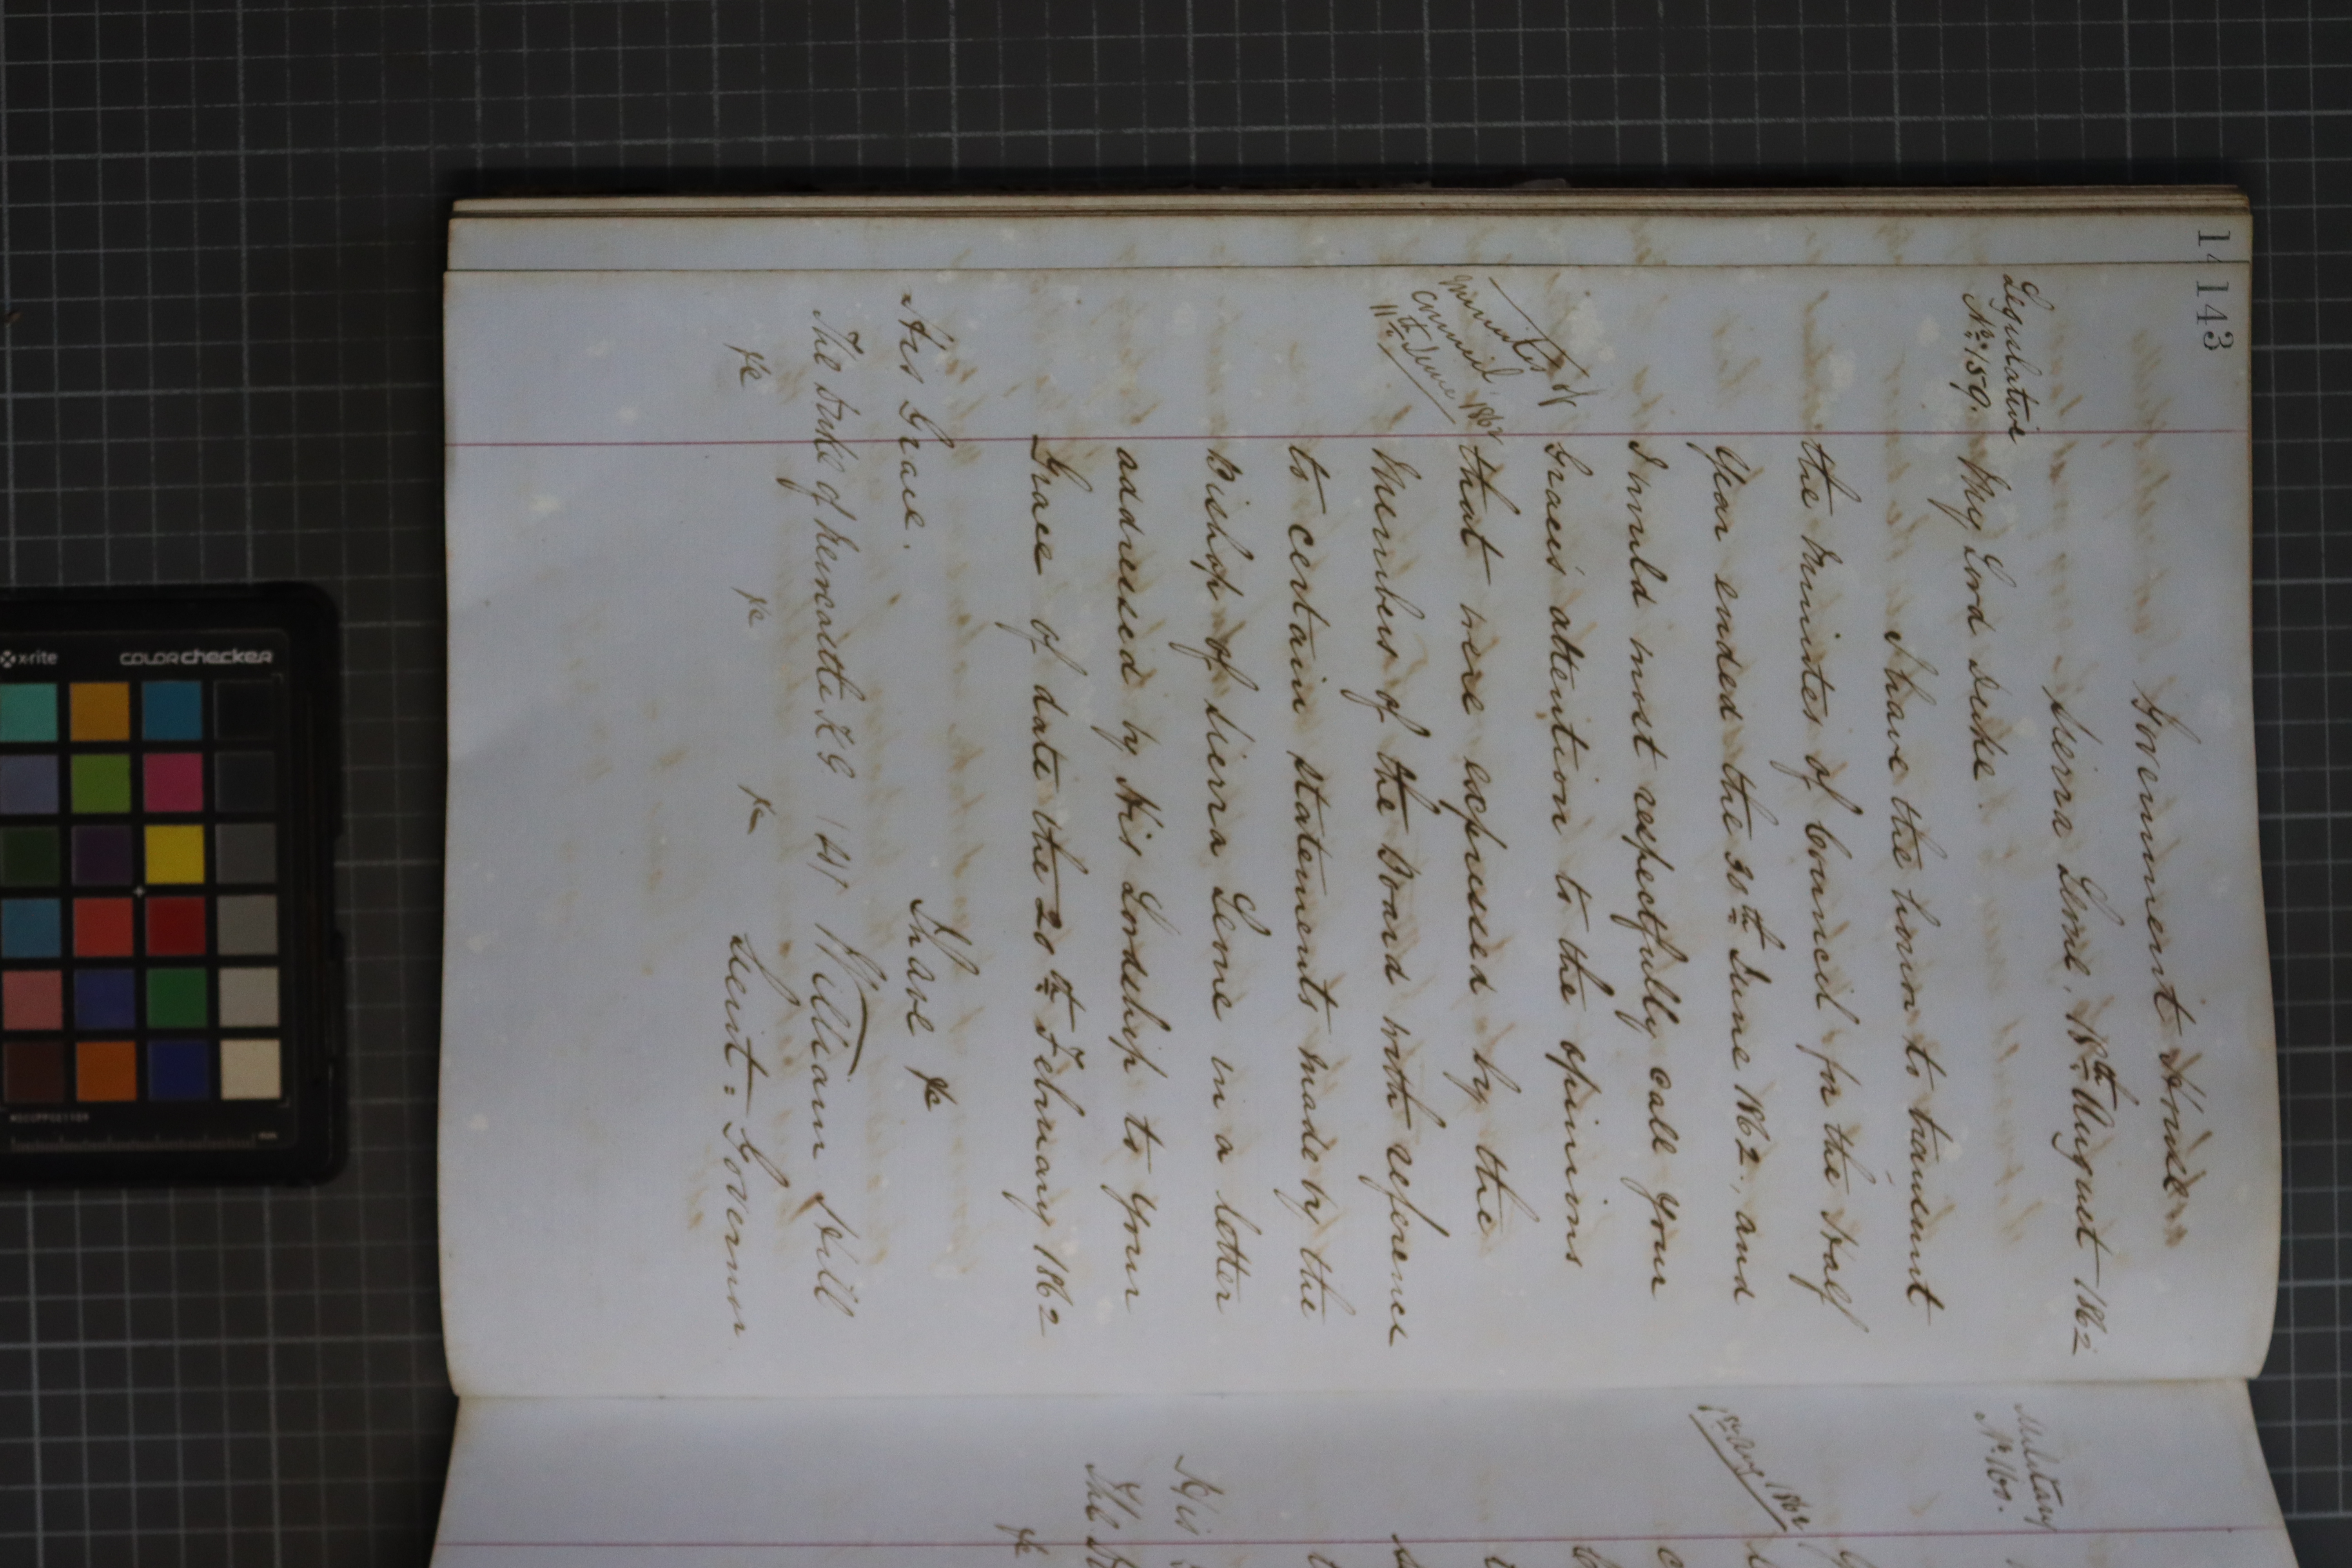 143
Government House
Sierra Leone, 18th August 1862
Legislative
No. 159.
My Lord Duke.
I have the honor to transmit
the Minutes of Council for the Half
Year ended the 30th June 1862, and
I would most respectfully call your
Grace's attention to the opinions
Minutes of
Council
11th June 1862
that were expressed by the
Members of the Board with reference
to certain statements made by the
Bishop of Sierra Leone in a letter
addressed by His Lordship to your
Grace of date the 20th February 1862
I have &c
His Grace.
The Duke of Newcastle KG
William Hill
&c &c &c
Lieut. Governor
14
Military
No. 160.
1862
His
The
&c
x-rite
colorchecker